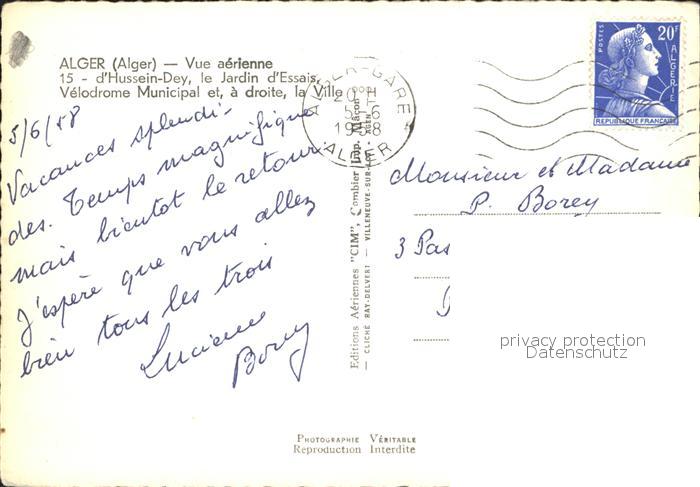 ALGER (Alger) — Vue aérienne
15 - d'Hussein-Dey, le Jardin d'Essais,
Vélodrome Municipal et, à droite, la Ville
5/6/58
Vacances splendi-
des. Temps magnifique
mais bientot le retour.
J'espère que vous allez
bien tous les trois
Lucienne
Borey
Editions Aériennes "CIM", Combier Imp. Mâcon
— CLICHÉ RAY-DELVERT — VILLENEUVE-SUR-LOT - AGEN
ALGER-GARE
20H
5-6
1958
ALGER
POSTES
20F
ALGERIE
REPUBLIQUE FRANÇAISE
Monsieur et Madame
P. Borey
3 Pas
privacy protection
Datenschutz
PHOTOGRAPHIE VÉRITABLE
Reproduction Interdite